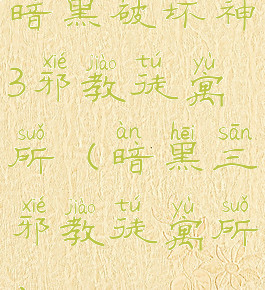 暗黑破坏神
xié jiào tú yù
3邪教徒寓
suǒ àn hēi sān
所（暗黑三
xié jiào tú yù suǒ
邪教徒寓所